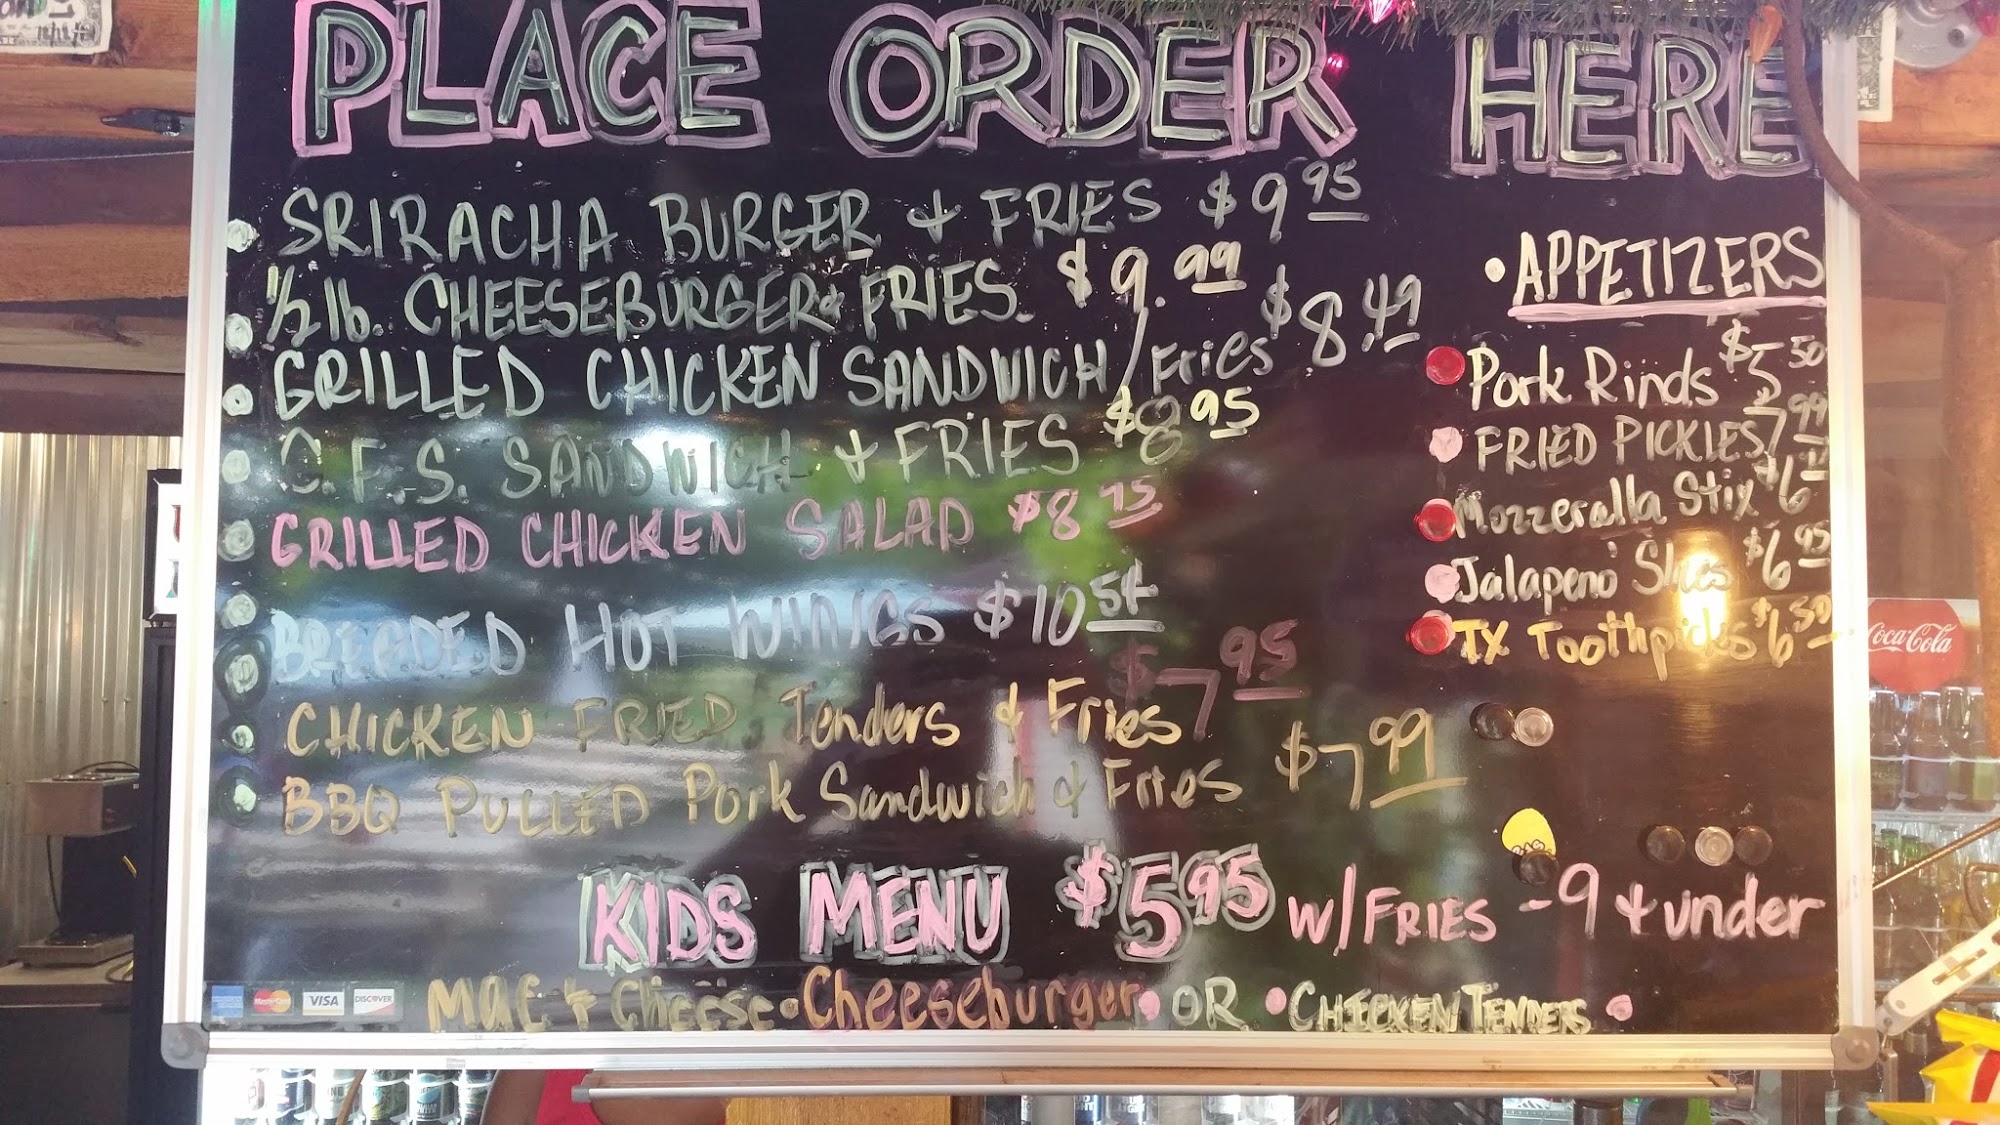 PLACE ORDER HERE
SRIRACHA BURGER & FRIES $9.95
1/2 lb. CHEESEBURGER & FRIES $9.99
GRILLED CHICKEN SANDWICH / Fries $8.49
C.F.S. SANDWICH & FRIES $8.95
GRILLED CHICKEN SALAD $8.75
BREADED HOT WINGS $10.54
CHICKEN FRIED Tenders & Fries $7.95
BBQ PULLED Pork Sandwich & Fries $7.99
• APPETIZERS
Pork Rinds $5.50
FRIED PICKLES 7.99
Mozzeralla Stix $6
Jalapeno Slices $6.95
TX Toothpicks $6.50
KIDS MENU $5.95 W/FRIES - 9 & under
Mac & Cheese • Cheeseburger • OR • CHICKEN TENDERS •
MasterCard VISA DISCOVER
Coca-Cola